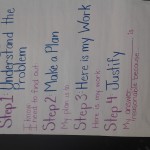 Step 1 Understand the
Problem
I need to find out
Step 2 Make a Plan
My plan is
Step 3 Here is my Work
Here is my work.
Step 4 Justify
My answer is
reasonable because